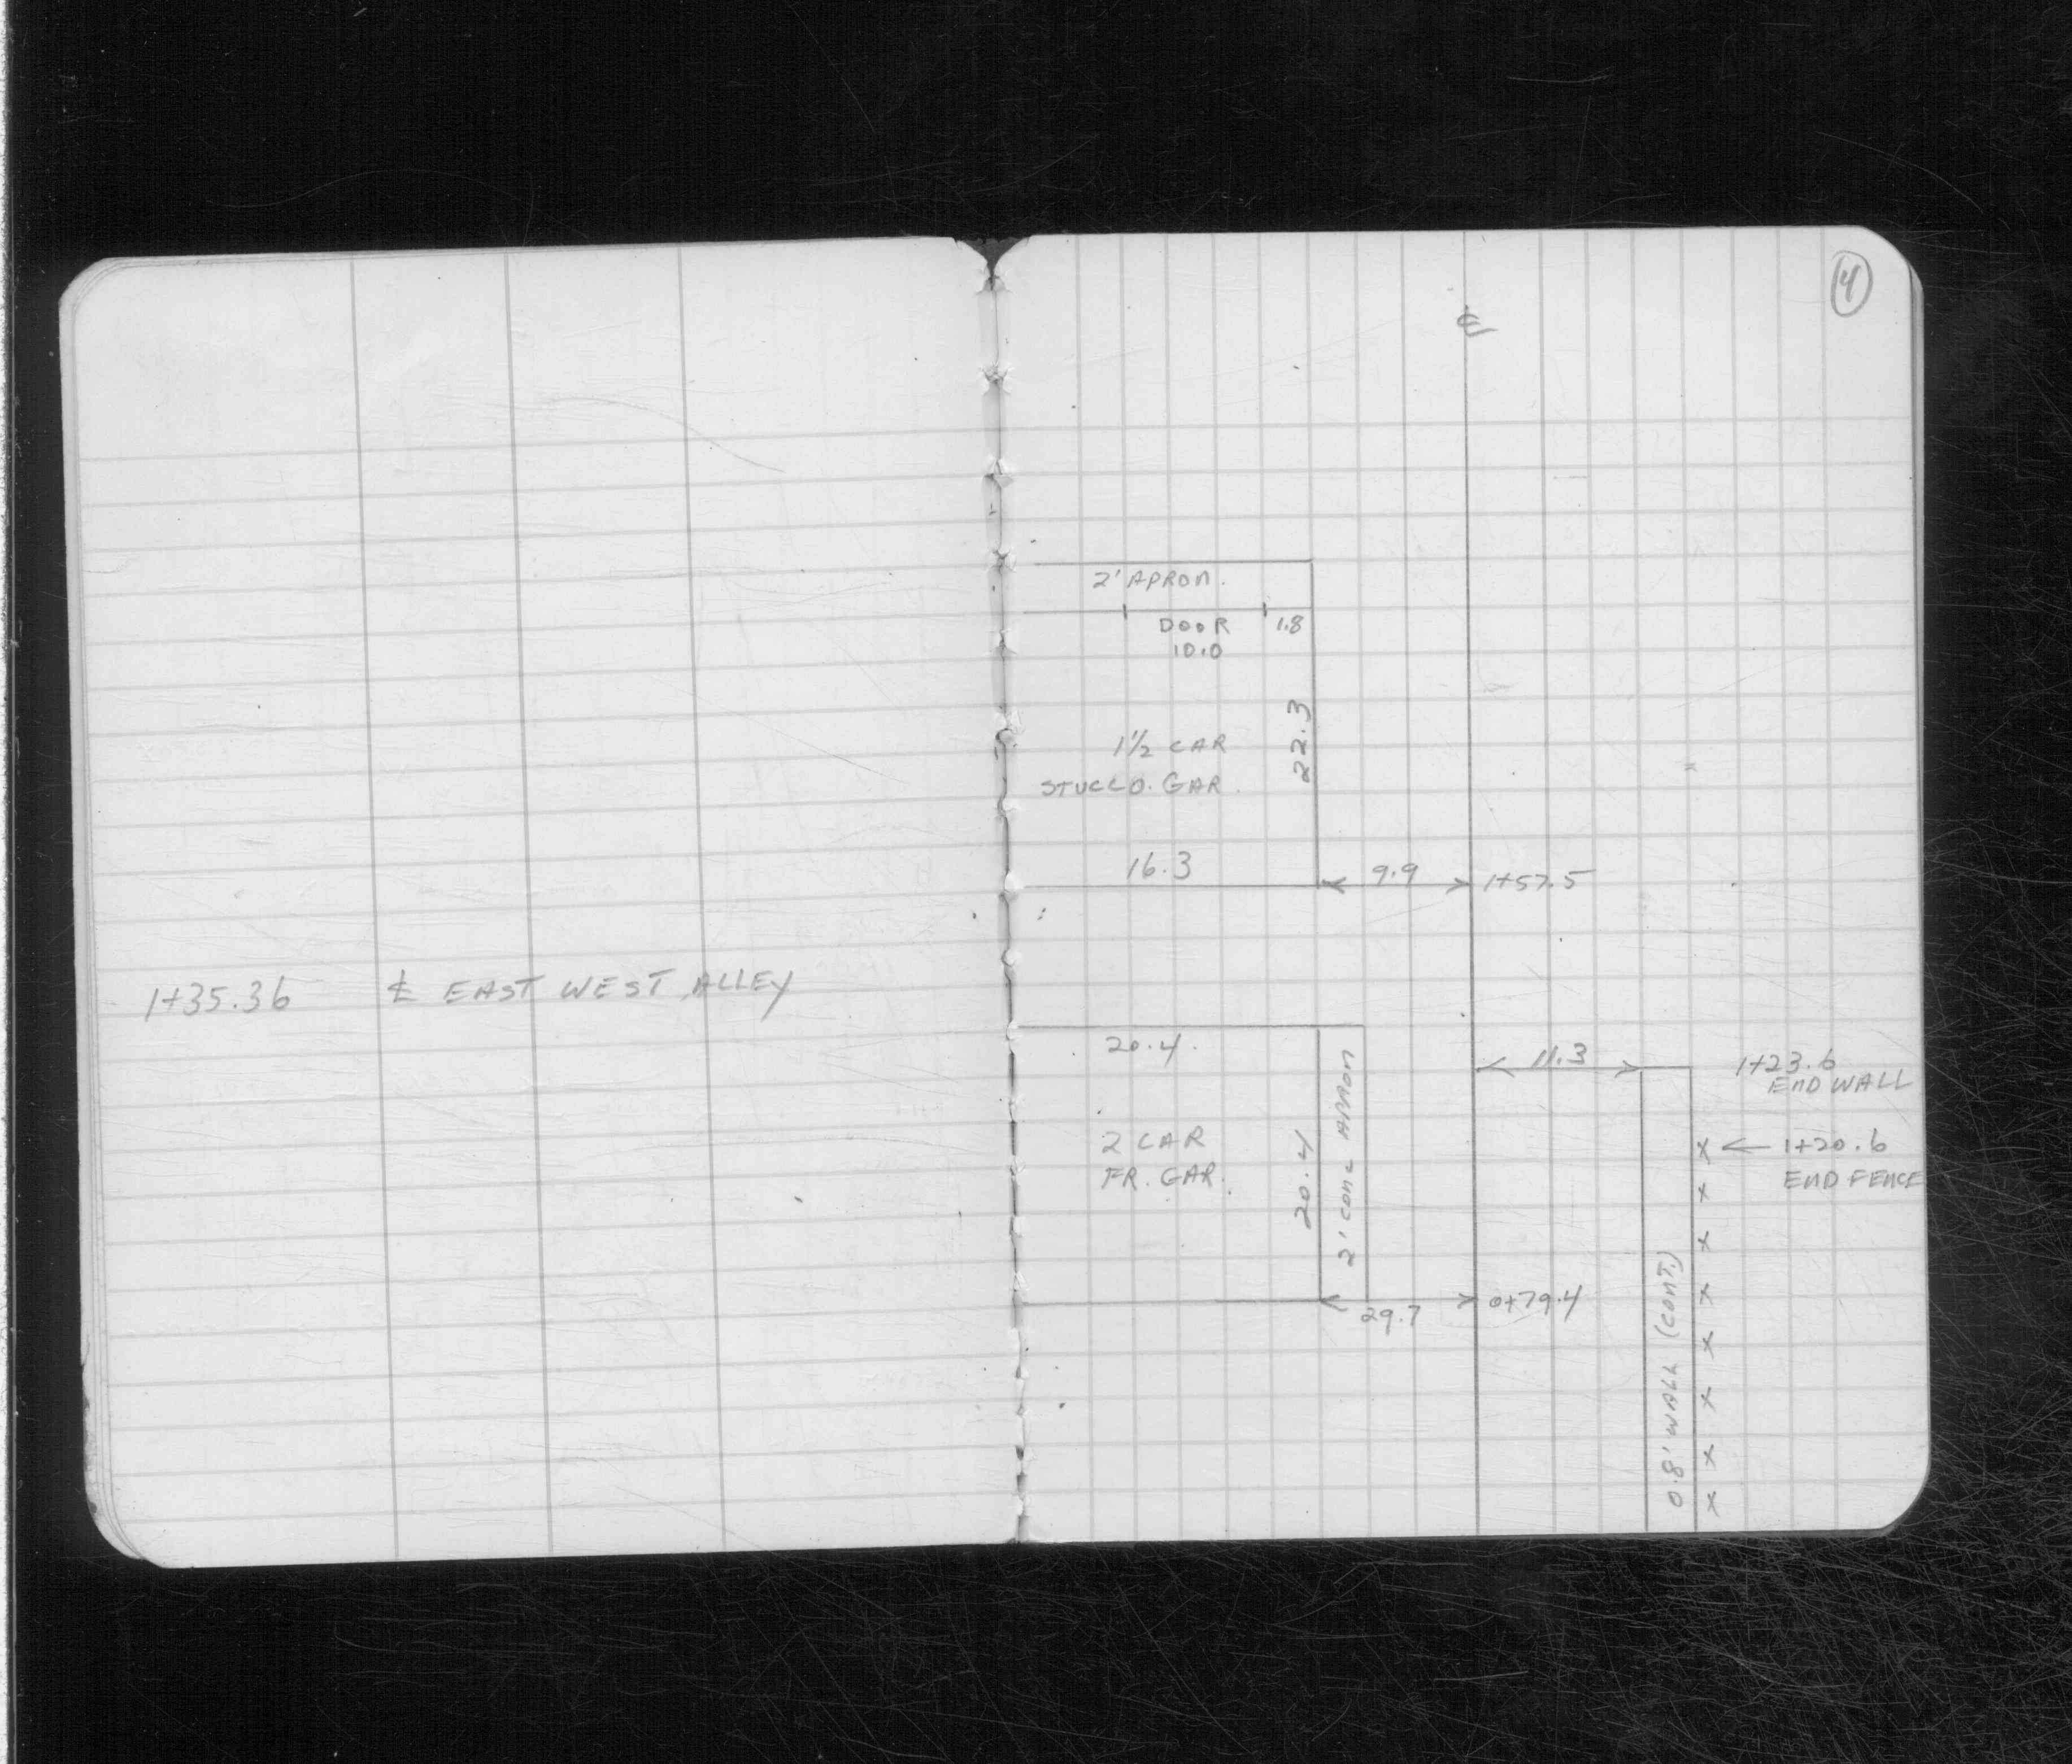 1+35.36 ℄ EAST WEST ALLEY
4
℄
2' APRON.
DOOR 1.8
10.0
22.3
1½ CAR
STUCCO. GAR.
16.3
9.9 1+57.5
20.4
11.3
1+23.6
END WALL
2' CONC APRON
2 CAR
FR. GAR.
20.4
1+20.6
END FENCE
29.7
0+79.4
0.8' WALL (CONT.)